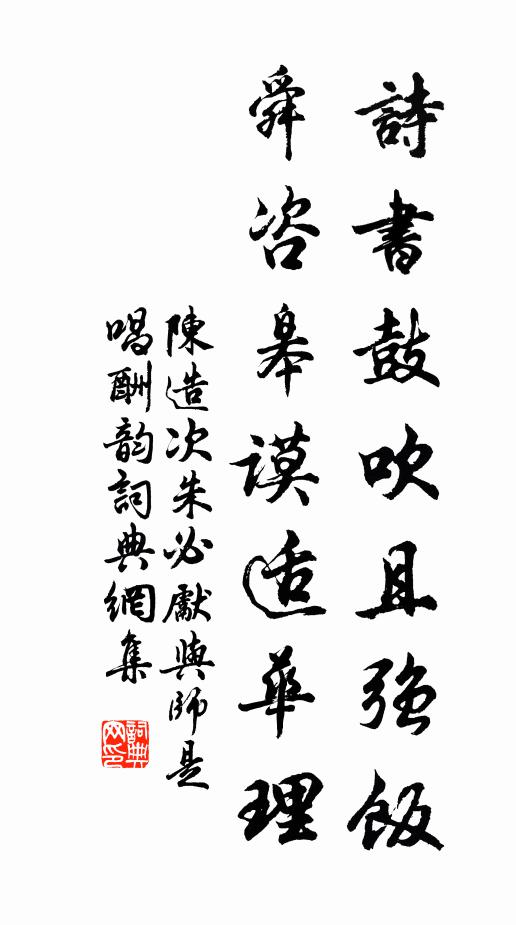 詩書鼓吹且強飯
舜咨皋謨适華理
陳造次朱必獻與師是
唱酬韵詞典網集
詞典网印